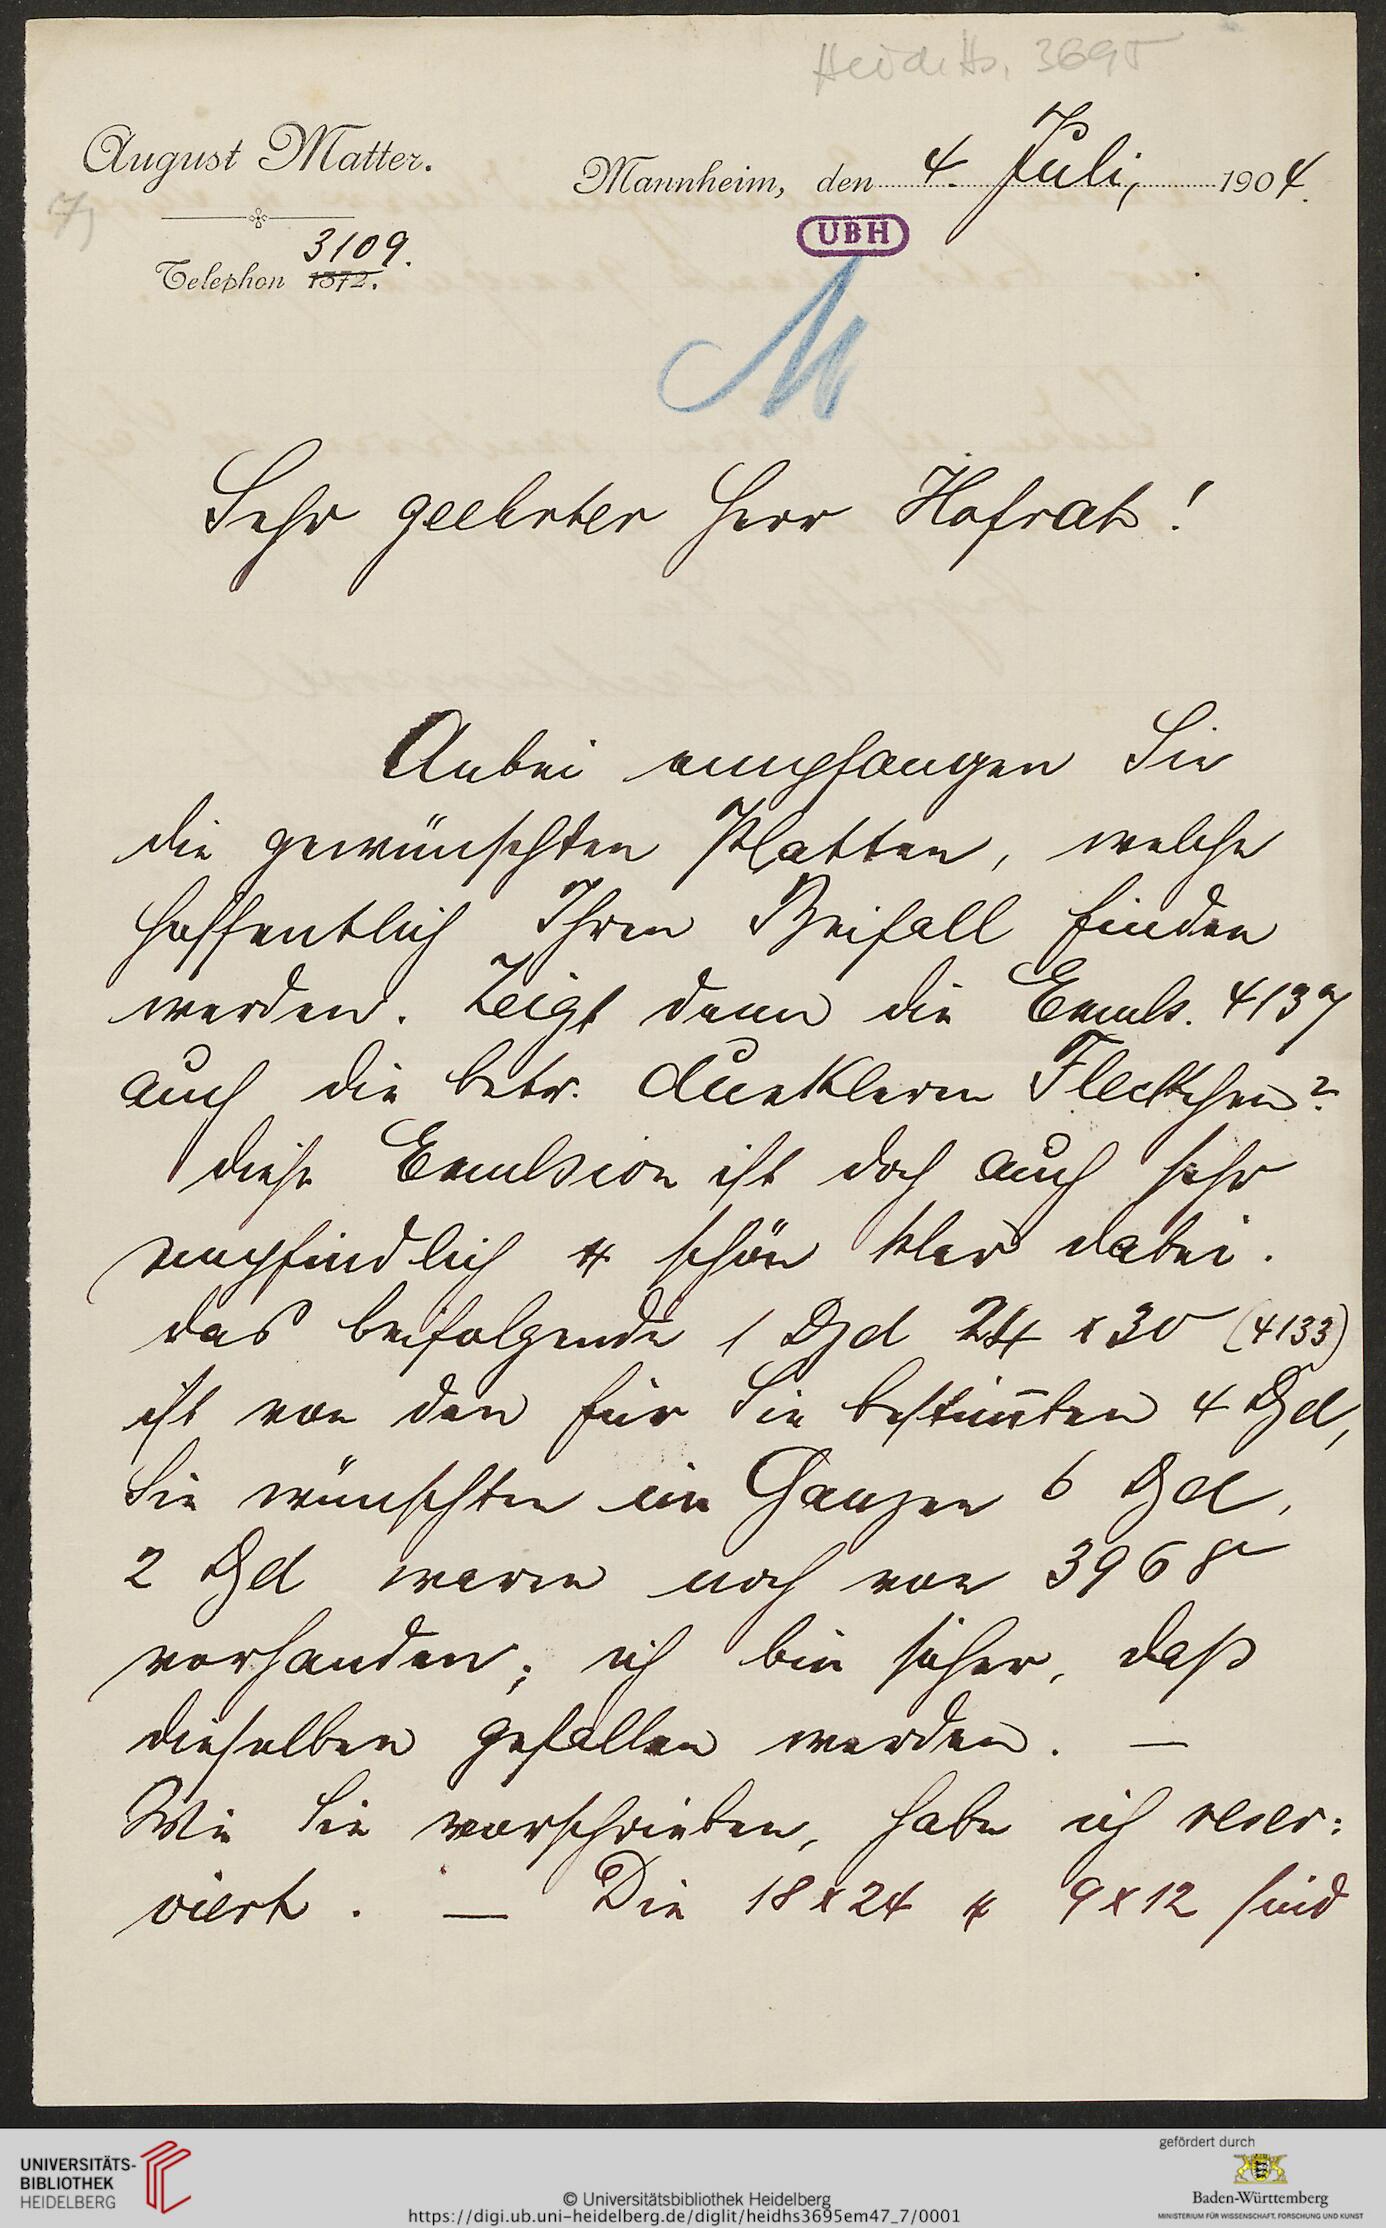 Heid. Hs. 3695
August Matter.
Mannheim, den 4. Juli, 1904.
7)
UBH
3109.
Telephon 1372.
M
Sehr geehrter Herr Hofrat!
Anbei empfangen Sie
die gewünschten Platten, welche
hoffentlich Ihren Beifall finden
werden. Zeigt denn die Emuls. 4137
auch die betr. dunkleren Fleckchen?
diese Emulsion ist doch auch sehr
empfindlich & schön klar dabei.
das beifolgende 1 Dzd 24 x 30 (4133)
ist von den für Sie bestim̅ten 4 Dzd,
Sie wünschten im Ganzen 6 Dzd,
2 Dzd waren noch von 3968
vorhanden; ich bin sicher, daß
dieselben gefallen werden. —
Wie Sie vorschrieben, habe ich reser:
viert. — Die 18x24 & 9x12 sind
UNIVERSITÄTS-
BIBLIOTHEK
HEIDELBERG
© Universitätsbibliothek Heidelberg
https://digi.ub.uni-heidelberg.de/diglit/heidhs3695em47_7/0001
gefördert durch
Baden-Württemberg
MINISTERIUM FÜR WISSENSCHAFT, FORSCHUNG UND KUNST